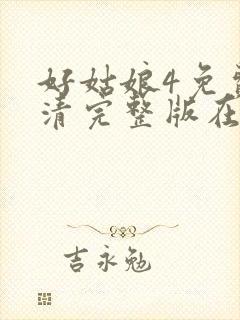 好姑娘4免
清完整版在
吉永勉